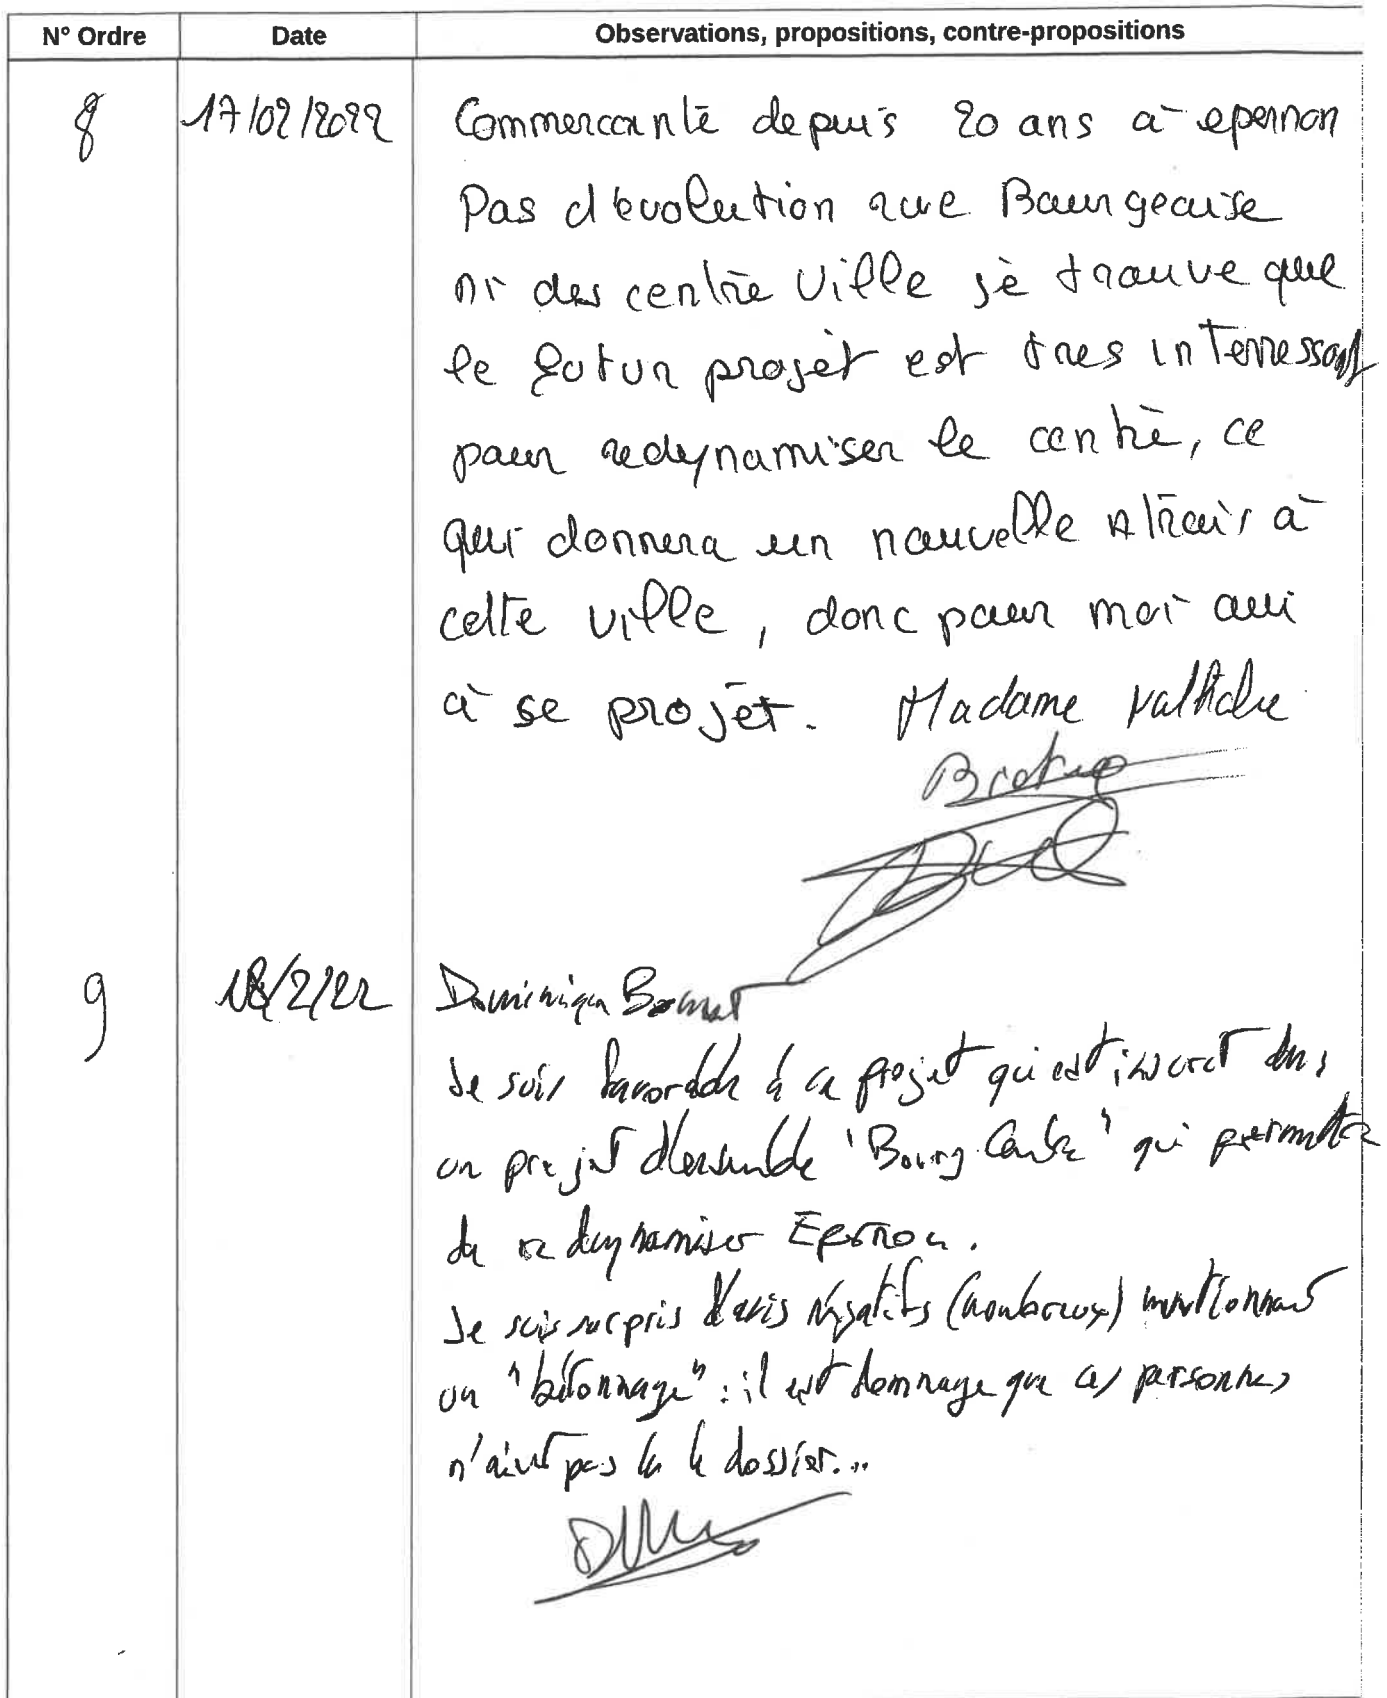 N° Ordre Date Observations, propositions, contre-propositions
8 17/02/2022 Commercante depuis 20 ans à epernon
Pas d'évolution rue Bourgeoise
ni des centre ville je trouve que
le futur projet est tres interressant
pour redynamiser le centre, ce
qui donnera un nouvelle atrait à
cette ville, donc pour moi oui
à se projet. Madame
9 18/2/22 Dominique
Je suis favorable à ce projet qui est inscrit dans
un projet d'ensemble "Bourg Centre" qui permettra
de redynamiser Epernon.
Je suis surpris d'avis négatifs (nombreux) mentionnant
un "bétonnage" : il est dommage que ces personnes
n'aient pas lu le dossier...